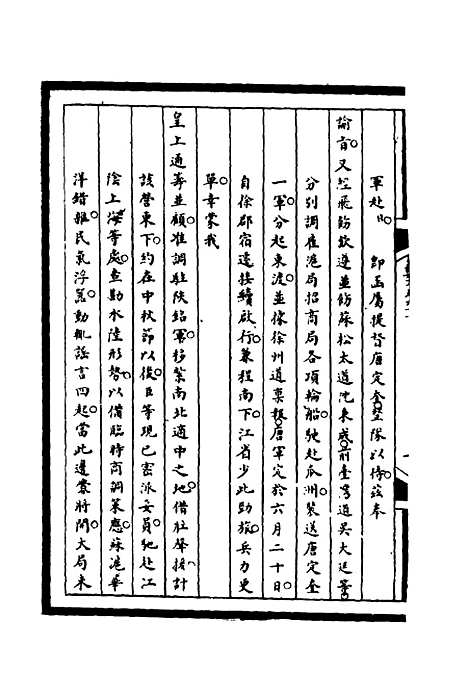 軍赴日 即函屬提督唐定奎整隊以待茲奉
諭旨又經飛飭欽遵並飭蘇松太道沈秉成前臺灣道吳大廷等
分別調雇滬局招商局各項輪船駛赴瓜洲裝送唐定奎
一軍分起東渡並據徐州道稟報唐軍定於六月二十日
自徐郡宿遷接續啟行兼程南下江省少此勁旅兵力更
單幸蒙我
皇上通籌並顧准調駐陝銘軍移紮南北適中之地借壯聲援計
該營東下約在中秋節以後臣等現已密派妥員馳赴江
陰上海等處查勘水陸形勢以備臨時商調策應蘇滬華
洋錯雜民氣浮囂動輒謠言四起當此邊釁將開大局未